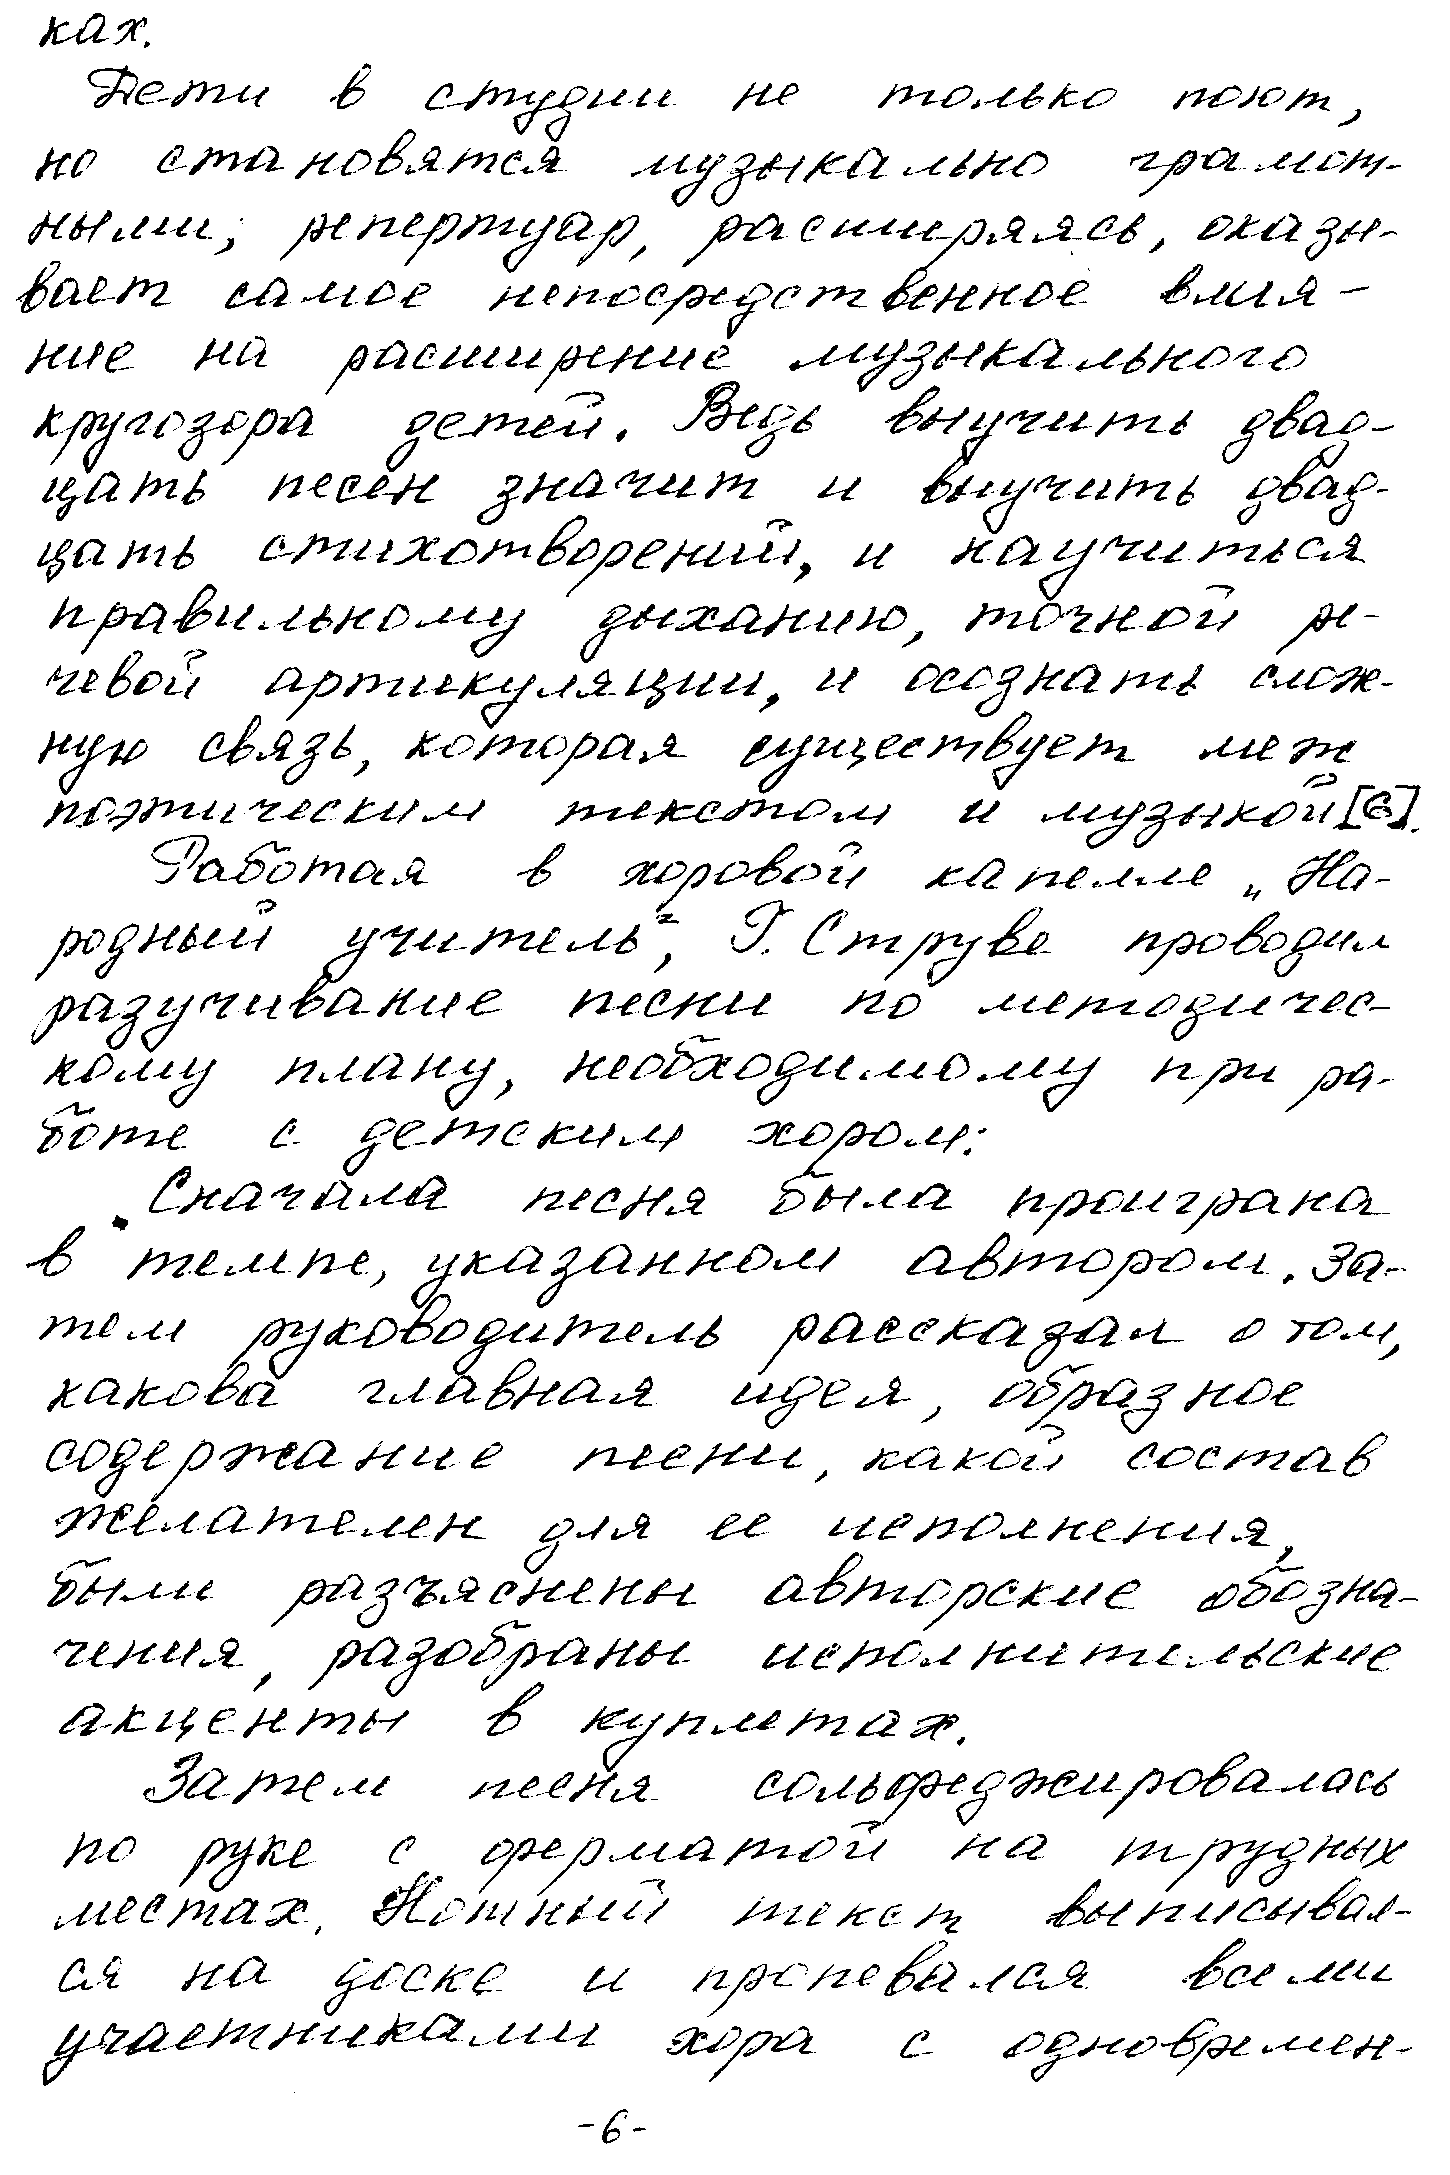 ках.
Дети в студии не только поют,
но становятся музыкально грамот-
ными; репертуар, расширяясь, оказы-
вает самое непосредственное влия-
ние на расширение музыкального
кругозора детей. Ведь выучить двад-
цать песен значит и выучить двад-
цать стихотворений, и научиться
правильному дыханию, точной ре-
чевой артикуляции, и осознать слож-
ную связь, которая существует меж
поэтическим текстом и музыкой [6].
Работая в хоровой капелле „На-
родный учитель“, Г. Струве проводил
разучивание песни по методичес-
кому плану, необходимому при ра-
боте с детским хором:
Сначала песня была проиграна
в темпе, указанном автором. За-
тем руководитель рассказал о том,
какова главная идея, образное
содержание песни, какой состав
желателен для ее исполнения,
были разъяснены авторские обозна-
чения, разобраны исполнительские
акценты в куплетах.
Затем песня сольфеджировалась
по руке с ферматой на трудных
местах. Нотный текст выписывал-
ся на доске и пропевался всеми
участниками хора с одновремен-
-6-